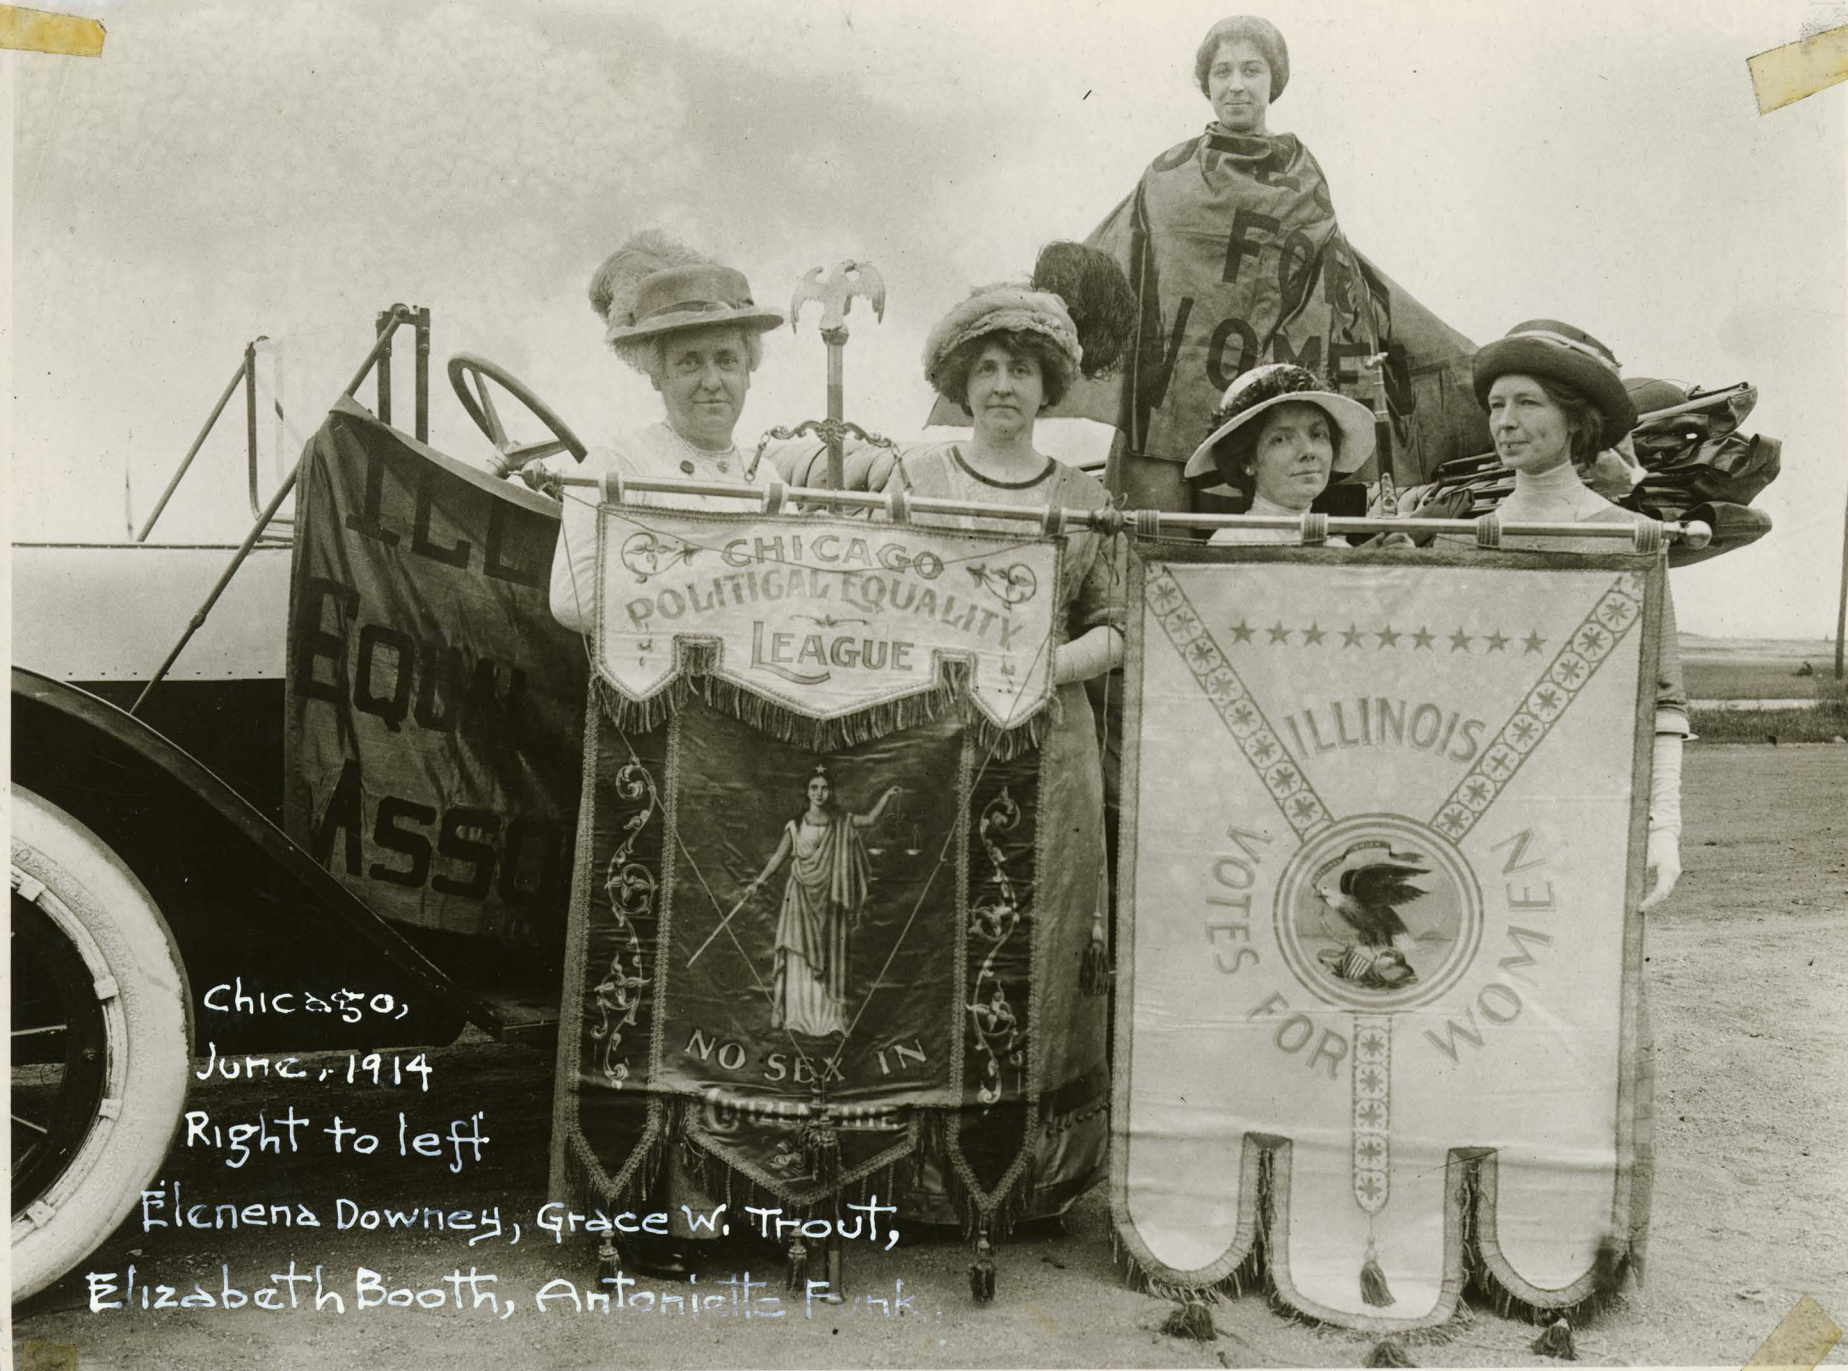 FOR
WOMEN
ILL
EQU
ASSO
CHICAGO
POLITICAL EQUALITY
LEAGUE
NO SEX IN
CITIZENSHIP
ILLINOIS
VOTES FOR WOMEN
Chicago,
June, 1914
Right to left
Elenena Downey, Grace W. Trout,
Elizabeth Booth, Antoniette Funk,